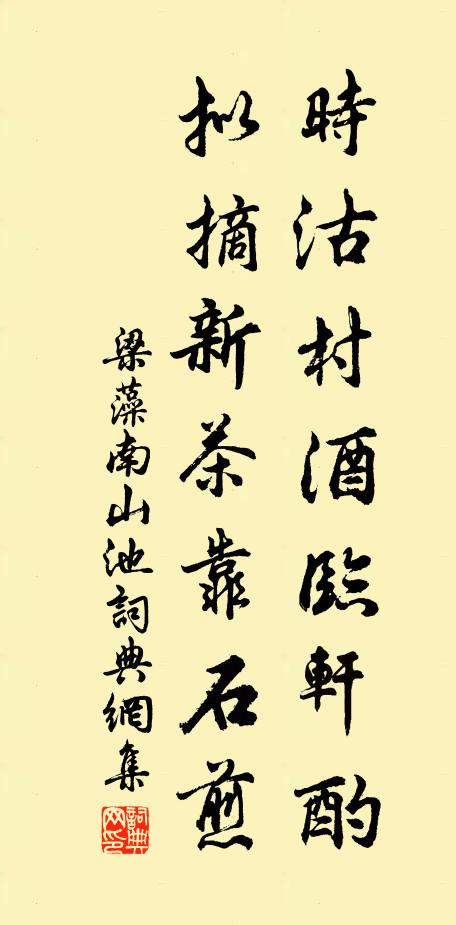 時沽村酒臨軒酌
拟摘新茶靠石煎
梁藻南山池詞典網集
詞典网印